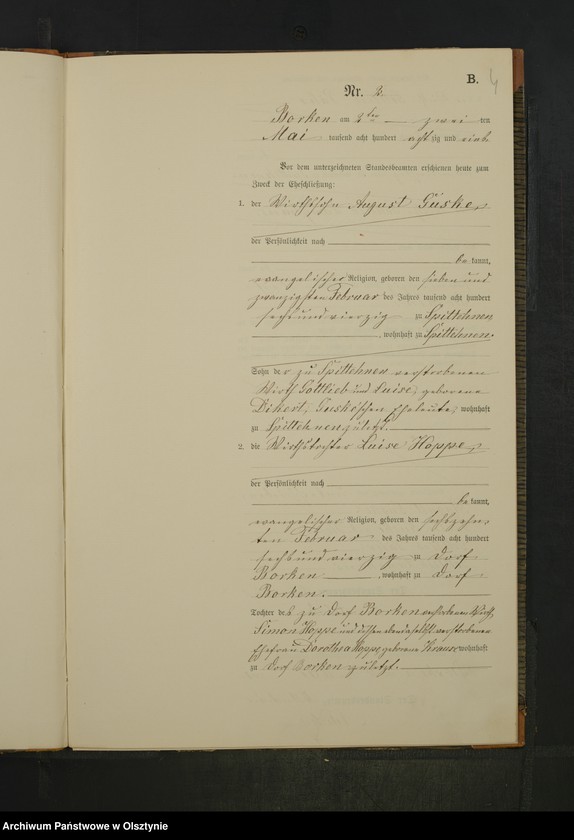 B. 4
Nr. 2.
Borken am 2ten zwei ten
Mai tausend acht hundert acht zig und
Vor dem unterzeichneten Standesbeamten erschienen heute zum
Zweck der Eheschließung:
1. der Wirthssohn August Guske,
der Persönlichkeit nach
be kannt,
evangelischer Religion, geboren den sieben und
zwanzigsten Februar des Jahres tausend acht hundert
sechsundvierzig zu Spittehnen
, wohnhaft zu Spittehnen,
Sohn der zu Spittehnen verstorbenen
Wirth Gottlieb und Luise, geborene
Dikert, Guskeschen Eheleute, wohnhaft
zu Spittehnen zuletzt.
2. die Wirthstochter Luise Hoppe,
der Persönlichkeit nach
be kannt,
evangelischer Religion, geboren den sechszehn-
ten Februar des Jahres tausend acht hundert
sechsundvierzig zu Dorf
Borken , wohnhaft zu Dorf
Borken.
Tochter des zu Dorf Borken verstorbenen Wirth
Simon Hoppe und dessen daselbst verstorbenen
Ehefrau Dorothea Hoppe geborene Krause wohnhaft
zu Dorf Borken zuletzt.
Archiwum Państwowe w Olsztynie